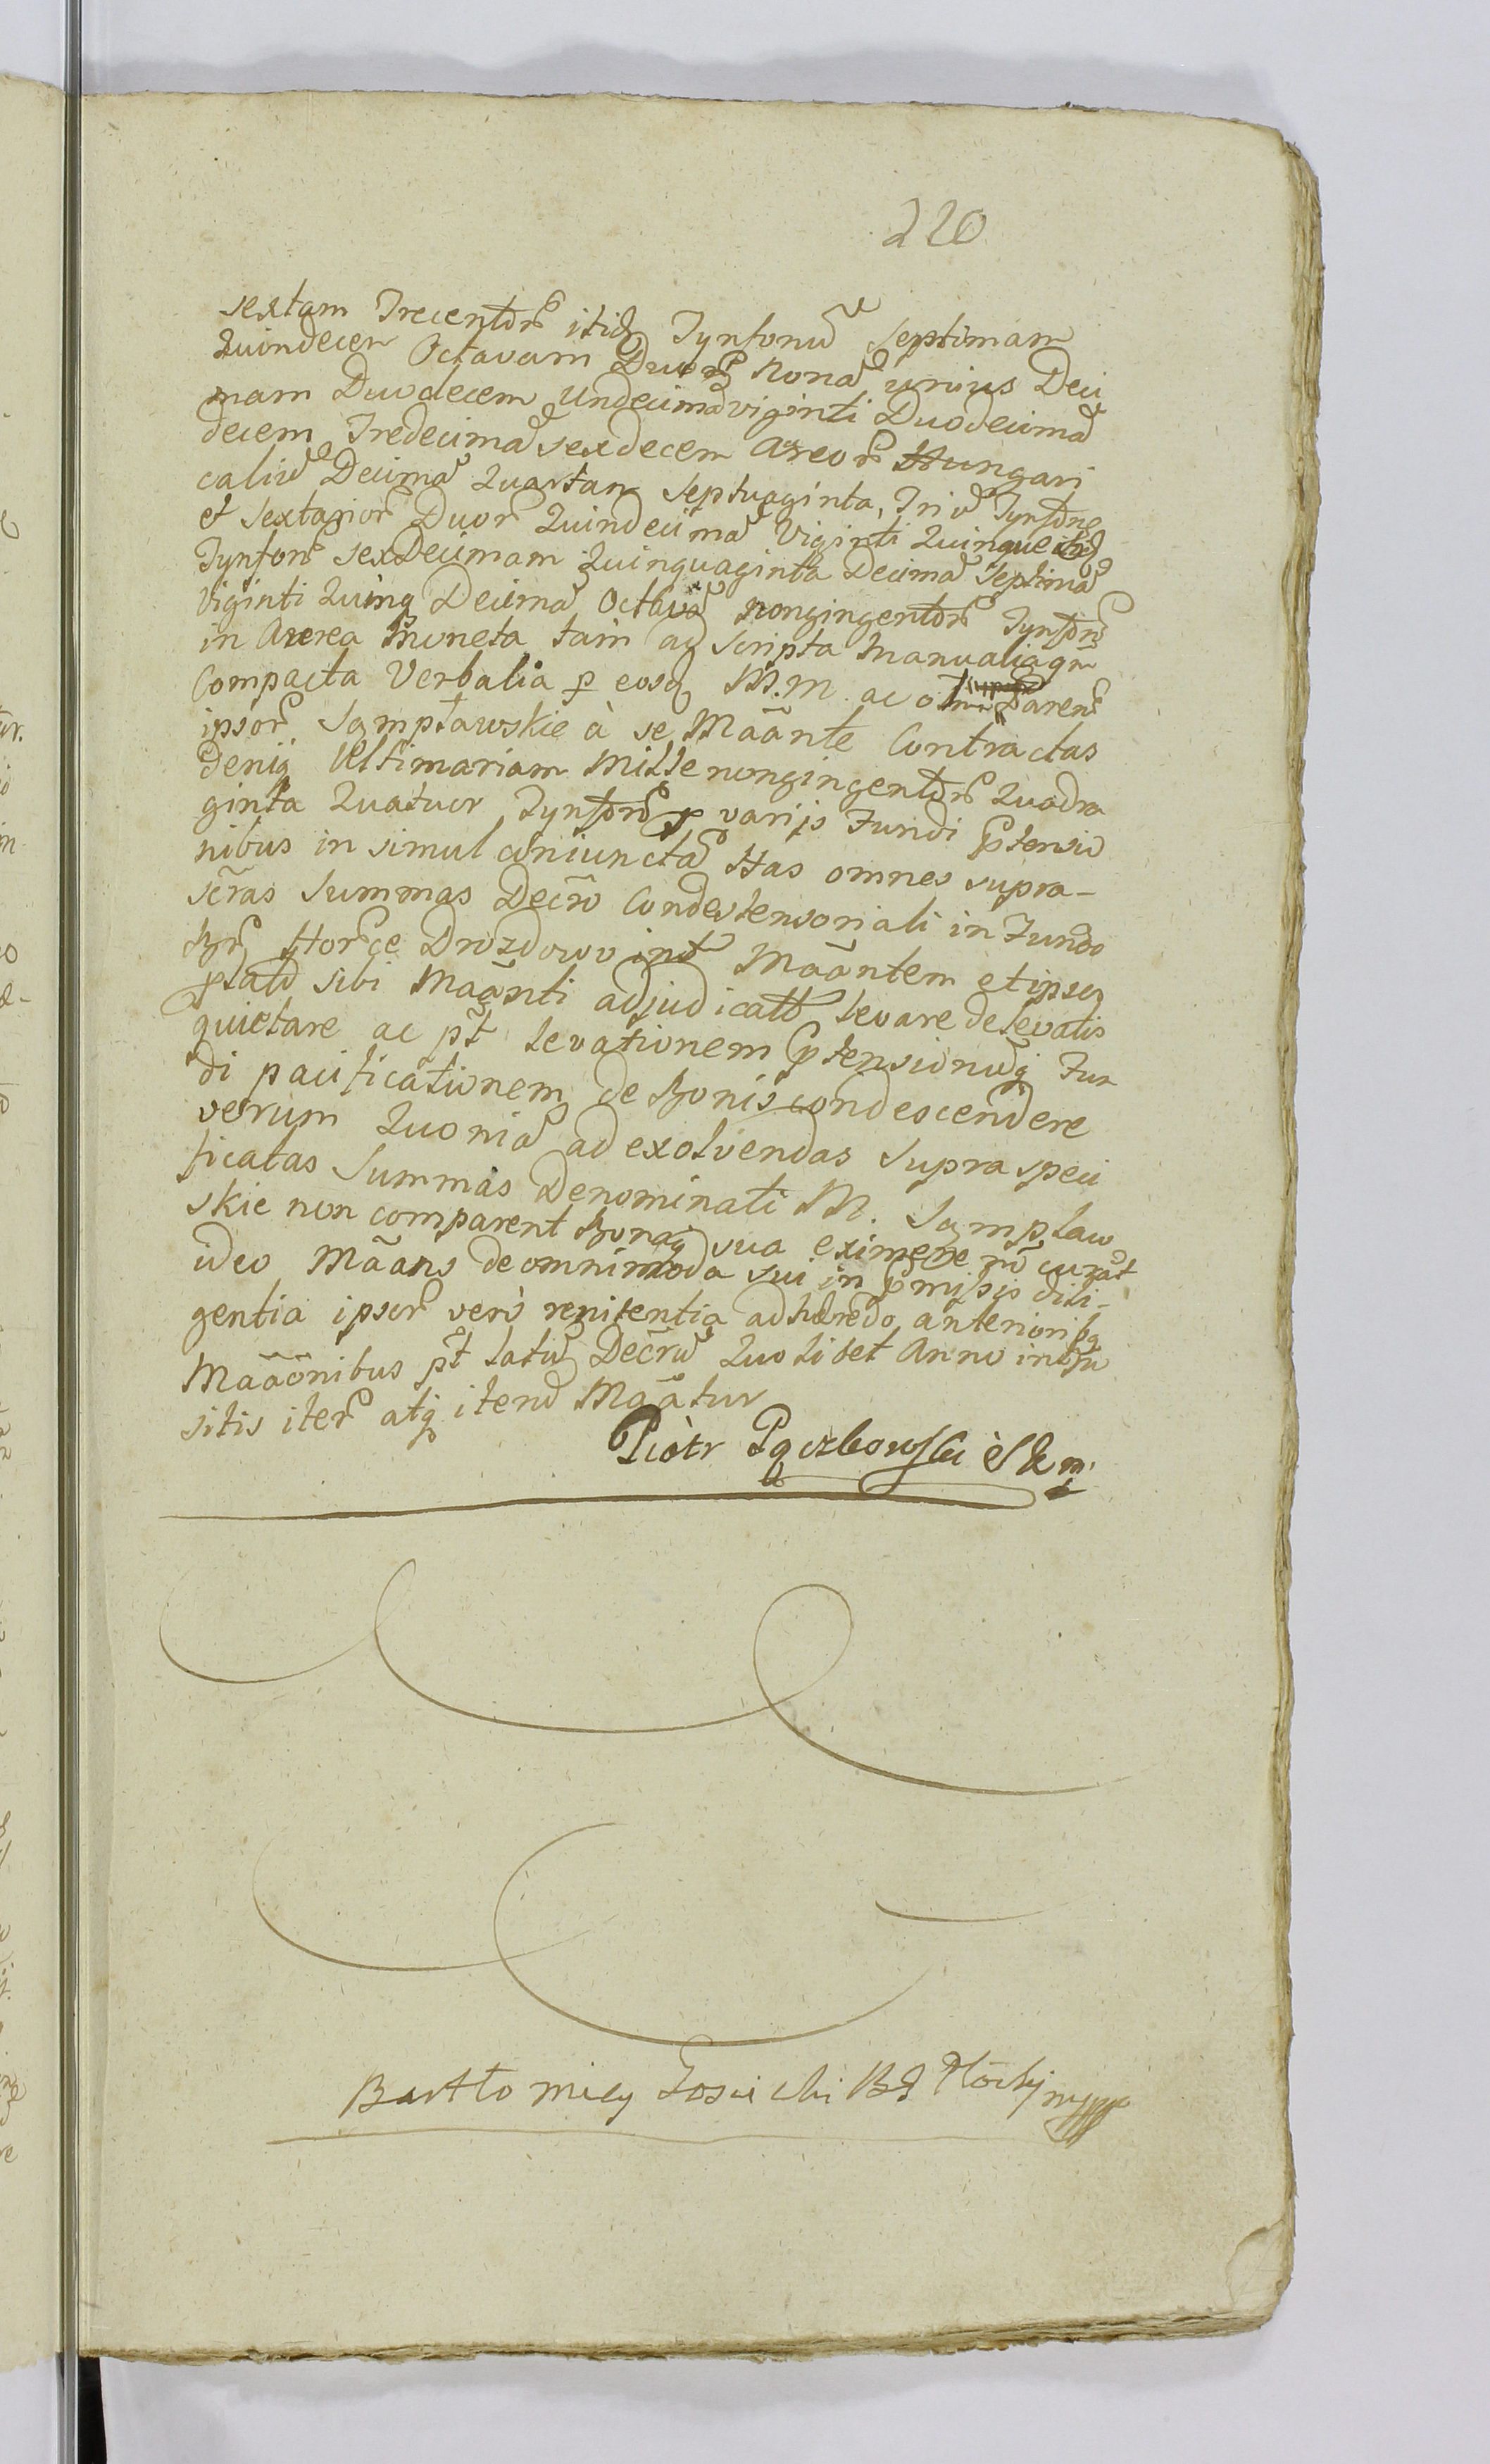 220
sextam Trecentor̃ itidẽ Tynfonũ Septimam
Quindecem Octavam Duorũ Nonã unius Deci
mam Duodecem Undecimã viginti Duodecimã
decem Tredecimã sexdecem Aureor̃ Hungari
caliũ Decimã Quartam Septuaginta, Triũ Tynfõne
et sextagior̃ Duor̃ Quindecimã Viginti Quinque itidẽ
Tynfonr̃ sexDecimam Quinquaginta Decimã Septimã
Viginti Quinq Decimã Octavã nongingentor̃ Tynfor̃
in Aurea Moneta tam ad scripta Manualia qm̃
Compacta Verbalia p eosd M.M. ac olim Paren̄
ipsor̃ Sąmpławskie à se Mãante Contractas
deniq Ultimariam Mille nongingentor̃ Quadra
ginta Quatuor Tynfor̃ p varijs Fundi Ptensio
nibus in simul coniunctã Has omnes supra-
scr̃as Summas Decr̃o Condestensoriali in Fundo
Bnr̃ Hor̃ce Drozdowo int̃ Mãantem et ipsos
plato sibi Mãanti adjudicatt̃ levare de levatis
quietare ac p̃t levationem Ptensionũq Fun
di pacificationem de Bonis condescendere
verum Quoniã ad exolvendas supra speci
ficatas Summas Denominati M. Sąmplaw
skie non comparent Bonaq sua eximere nõ curãt
ideo Mãans de omnimoda sui in Pmissis dili-
gentia ipsor̃ verò renitentia adhærendo anteriorib9
Mãaõnibus p̃t latũ Decr̃ũ Quolibet Anno interpo
sitis iter̃ atq iterũ Mãatur
Piotr Pączkowski SKm.
Barttomiey Łosicki BG Płocki mppp